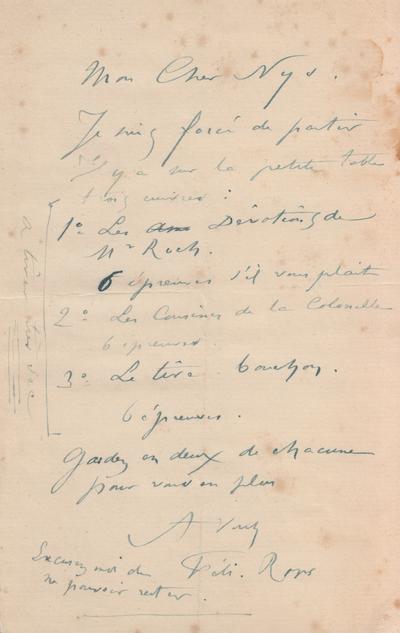 Mon Cher Nys.
Je suis forcé de partir
Il y a sur la petite table
trois cuivres :
1º Les Dévotions de
Mr Roch.
6 épreuves s'il vous plait
2º Les Cousines de la Colonelle
6 épreuves.
3º Le tire bouchon.
6 épreuves.
Gardez en deux de chacune
pour vous en plus
A Vous
Féli. Rops
Excusez moi de
ne pouvoir rester.
à tirer très sec